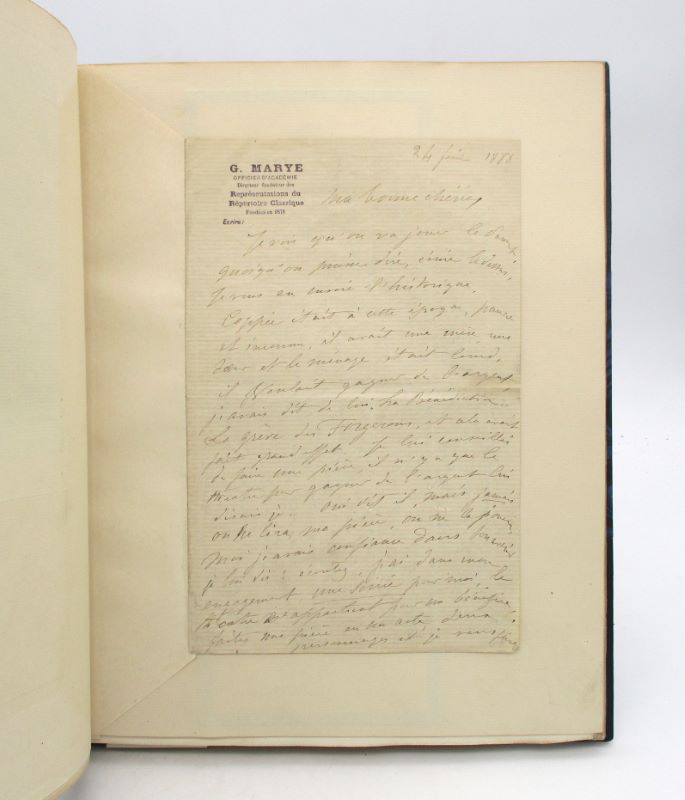 G. MARYE
OFFICIER D'ACADÉMIE
Directeur fondateur des
Représentations du
Répertoire Classique
Fondées en 1878
Ecrire:
24 1888
Ma bonne chérie,
Je vois qu'on va jouer le
quoiqu'on puisse dire,
Je vous en envoie l'historique.
Coppée était à cette époque, pauvre
et inconnu, il avait une mère, une
sœur et le ménage était lourd,
il voulait gagner de l'argent
j'avais dit de lui, La Bénédiction
La grève des Forgerons, et cela avait
fait grand effet. Je lui conseillai
de faire une pièce, il n'y a que le
théatre pour gagner de l'argent lui
disais je. Oui dit il mais jamais
on ne lira ma pièce, on ne la
Moi j'avais confiance dans
je lui dis: écoutez, j'ai dans mon
engagement une soirée pour moi, le
théatre m'appartient pour un bénéfice
faites une pièce en un acte, deux
personnages et je